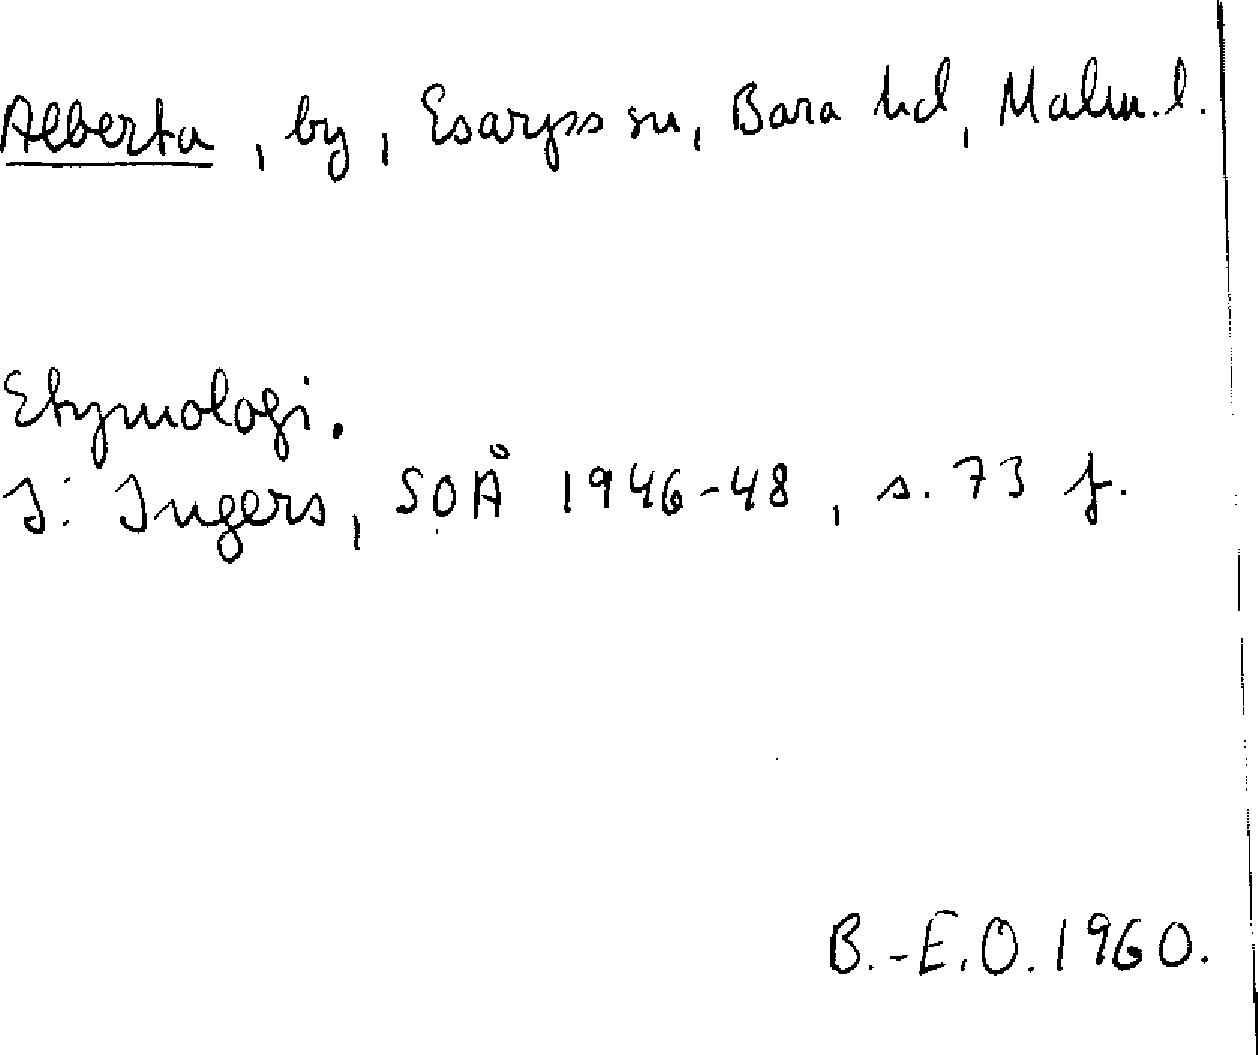 Alberta, by, Esarps sn, Bara hd, Malm.l.
Etymologi.
I: Ingers, SOÅ 1946-48, s. 73 f.
B.-E.O. 1960.